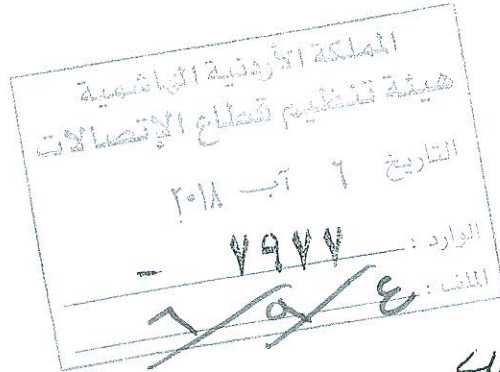 المملكة الأردنية الهاشمية
هيئة تنظيم قطاع الإتصالات
التاريخ ٦ آب ٢٠١٨
الوارد : ٧٩٧٧ -
الملف : ٤/٩/٦